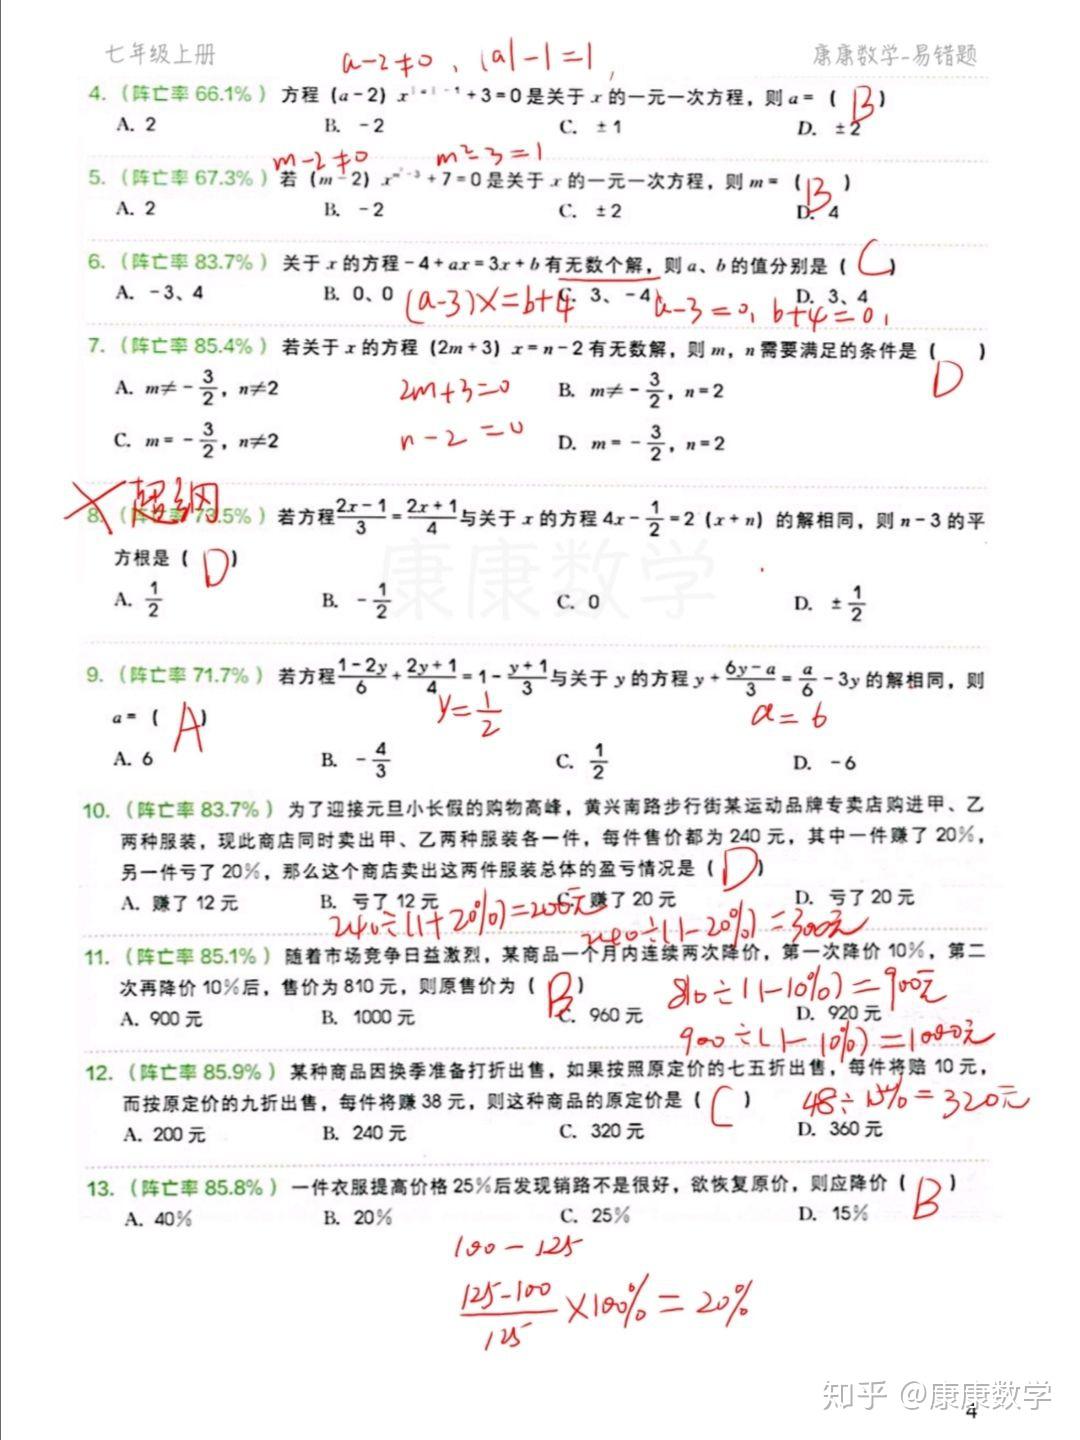 七年级上册 康康数学-易错题
a-2≠0、|a|-1=1,
4.（阵亡率 66.1%）方程（a-2）x^{|a|-1}+3=0是关于x的一元一次方程，则a=（B）
A. 2 B. -2 C. ±1 D. ±2
m-2≠0 m²-3=1
5.（阵亡率 67.3%）若（m-2）x^{m²-3}+7=0是关于x的一元一次方程，则m=（B）
A. 2 B. -2 C. ±2 D. 4
6.（阵亡率 83.7%）关于x的方程-4+ax=3x+b有无数个解，则a、b的值分别是（C）
A. -3、4 B. 0、0 C. 3、-4 D. 3、4
(a-3)x=b+4 a-3=0, b+4=0,
7.（阵亡率 85.4%）若关于x的方程（2m+3）x=n-2有无数解，则m，n需要满足的条件是（D）
A. m≠-3/2，n≠2 2m+3=0 B. m≠-3/2，n=2
C. m=-3/2，n≠2 n-2=0 D. m=-3/2，n=2
×超纲
8.（阵亡率 73.5%）若方程(2x-1)/3=(2x+1)/4与关于x的方程4x-1/2=2（x+n）的解相同，则n-3的平
方根是（D）
A. 1/2 B. -1/2 C. 0 D. ±1/2
康康数学
9.（阵亡率 71.7%）若方程(1-2y)/6+(2y+1)/4=1-(y+1)/3与关于y的方程y+(6y-a)/3=a/6-3y的解相同，则
a=（A） y=1/2 a=6
A. 6 B. -4/3 C. 1/2 D. -6
10.（阵亡率 83.7%）为了迎接元旦小长假的购物高峰，黄兴南路步行街某运动品牌专卖店购进甲、乙
两种服装，现此商店同时卖出甲、乙两种服装各一件，每件售价都为240元，其中一件赚了20%，
另一件亏了20%，那么这个商店卖出这两件服装总体的盈亏情况是（D）
A. 赚了12元 B. 亏了12元 C. 赚了20元 D. 亏了20元
240÷(1+20%)=200元 240÷(1-20%)=300元
11.（阵亡率 85.1%）随着市场竞争日益激烈，某商品一个月内连续两次降价，第一次降价10%，第二
次再降价10%后，售价为810元，则原售价为（B） 810÷(1-10%)=900元
A. 900元 B. 1000元 C. 960元 D. 920元
900÷(1-10%)=1000元
12.（阵亡率 85.9%）某种商品因换季准备打折出售，如果按照原定价的七五折出售，每件将赔10元，
而按原定价的九折出售，每件将赚38元，则这种商品的原定价是（C） 48÷15%=320元
A. 200元 B. 240元 C. 320元 D. 360元
13.（阵亡率 85.8%）一件衣服提高价格25%后发现销路不是很好，欲恢复原价，则应降价（B）
A. 40% B. 20% C. 25% D. 15%
100-125
(125-100)/125×100%=20%
知乎 @康康数学
4